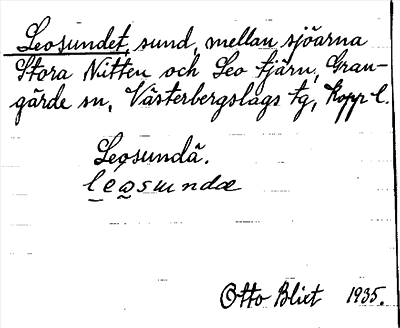 Leosundet, sund, mellan sjöarna
Stora Nitten och Leo tjärn, Gran-
gärde sn, Västerbergslags tg, Kopp l.
Leosundä.
leosundæ
Otto Blixt 1935.